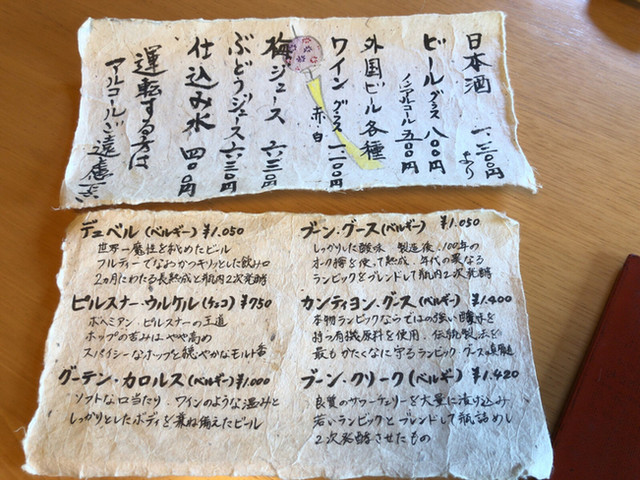 日本酒 一、三〇〇円より
ビール グラス 八〇〇円
ノンアルコール 五〇〇円
外国ビール各種
ワイン グラス 一、二〇〇円
赤・白
梅ジュース 六三〇円
ぶどうジュース 六三〇円
仕込み水 四〇〇円
運転する方は
アルコールご遠慮
デュベル(ベルギー) ¥1.050
世界一魔性を秘めたビール
フルティーでなおかつキリッとした飲み口
2ヵ月にわたる長熟成と瓶内2次発酵
ピルスナー・ウルケル(チェコ) ¥750
ボヘミアン・ピルスナーの王道
ホップの苦みはやや高め
スパイシーなホップと穏やかなモルト香
グーテン・カロルス(ベルギー) ¥1.000
ソフトな口当たり、ワインのような温みと
しっかりとしたボディを兼ね備えたビール
ブーン・グース(ベルギー) ¥1.050
しっかりした酸味 製造後、100年の
オーク樽を使って熟成、年代の異なる
ランビックをブレンドして瓶内2次発酵
カンティヨン・グース(ベルギー) ¥1.400
本物ランビックならではの強い酸味を
持つ有機原料を使用、伝統製法を
最もかたくなに守るランビック・グースの
ブーン・クリーク(ベルギー) ¥1.420
良質のサワーチェリーを大量に漬け込み
若いランビックとブレンドして瓶詰めし
2次発酵させたもの